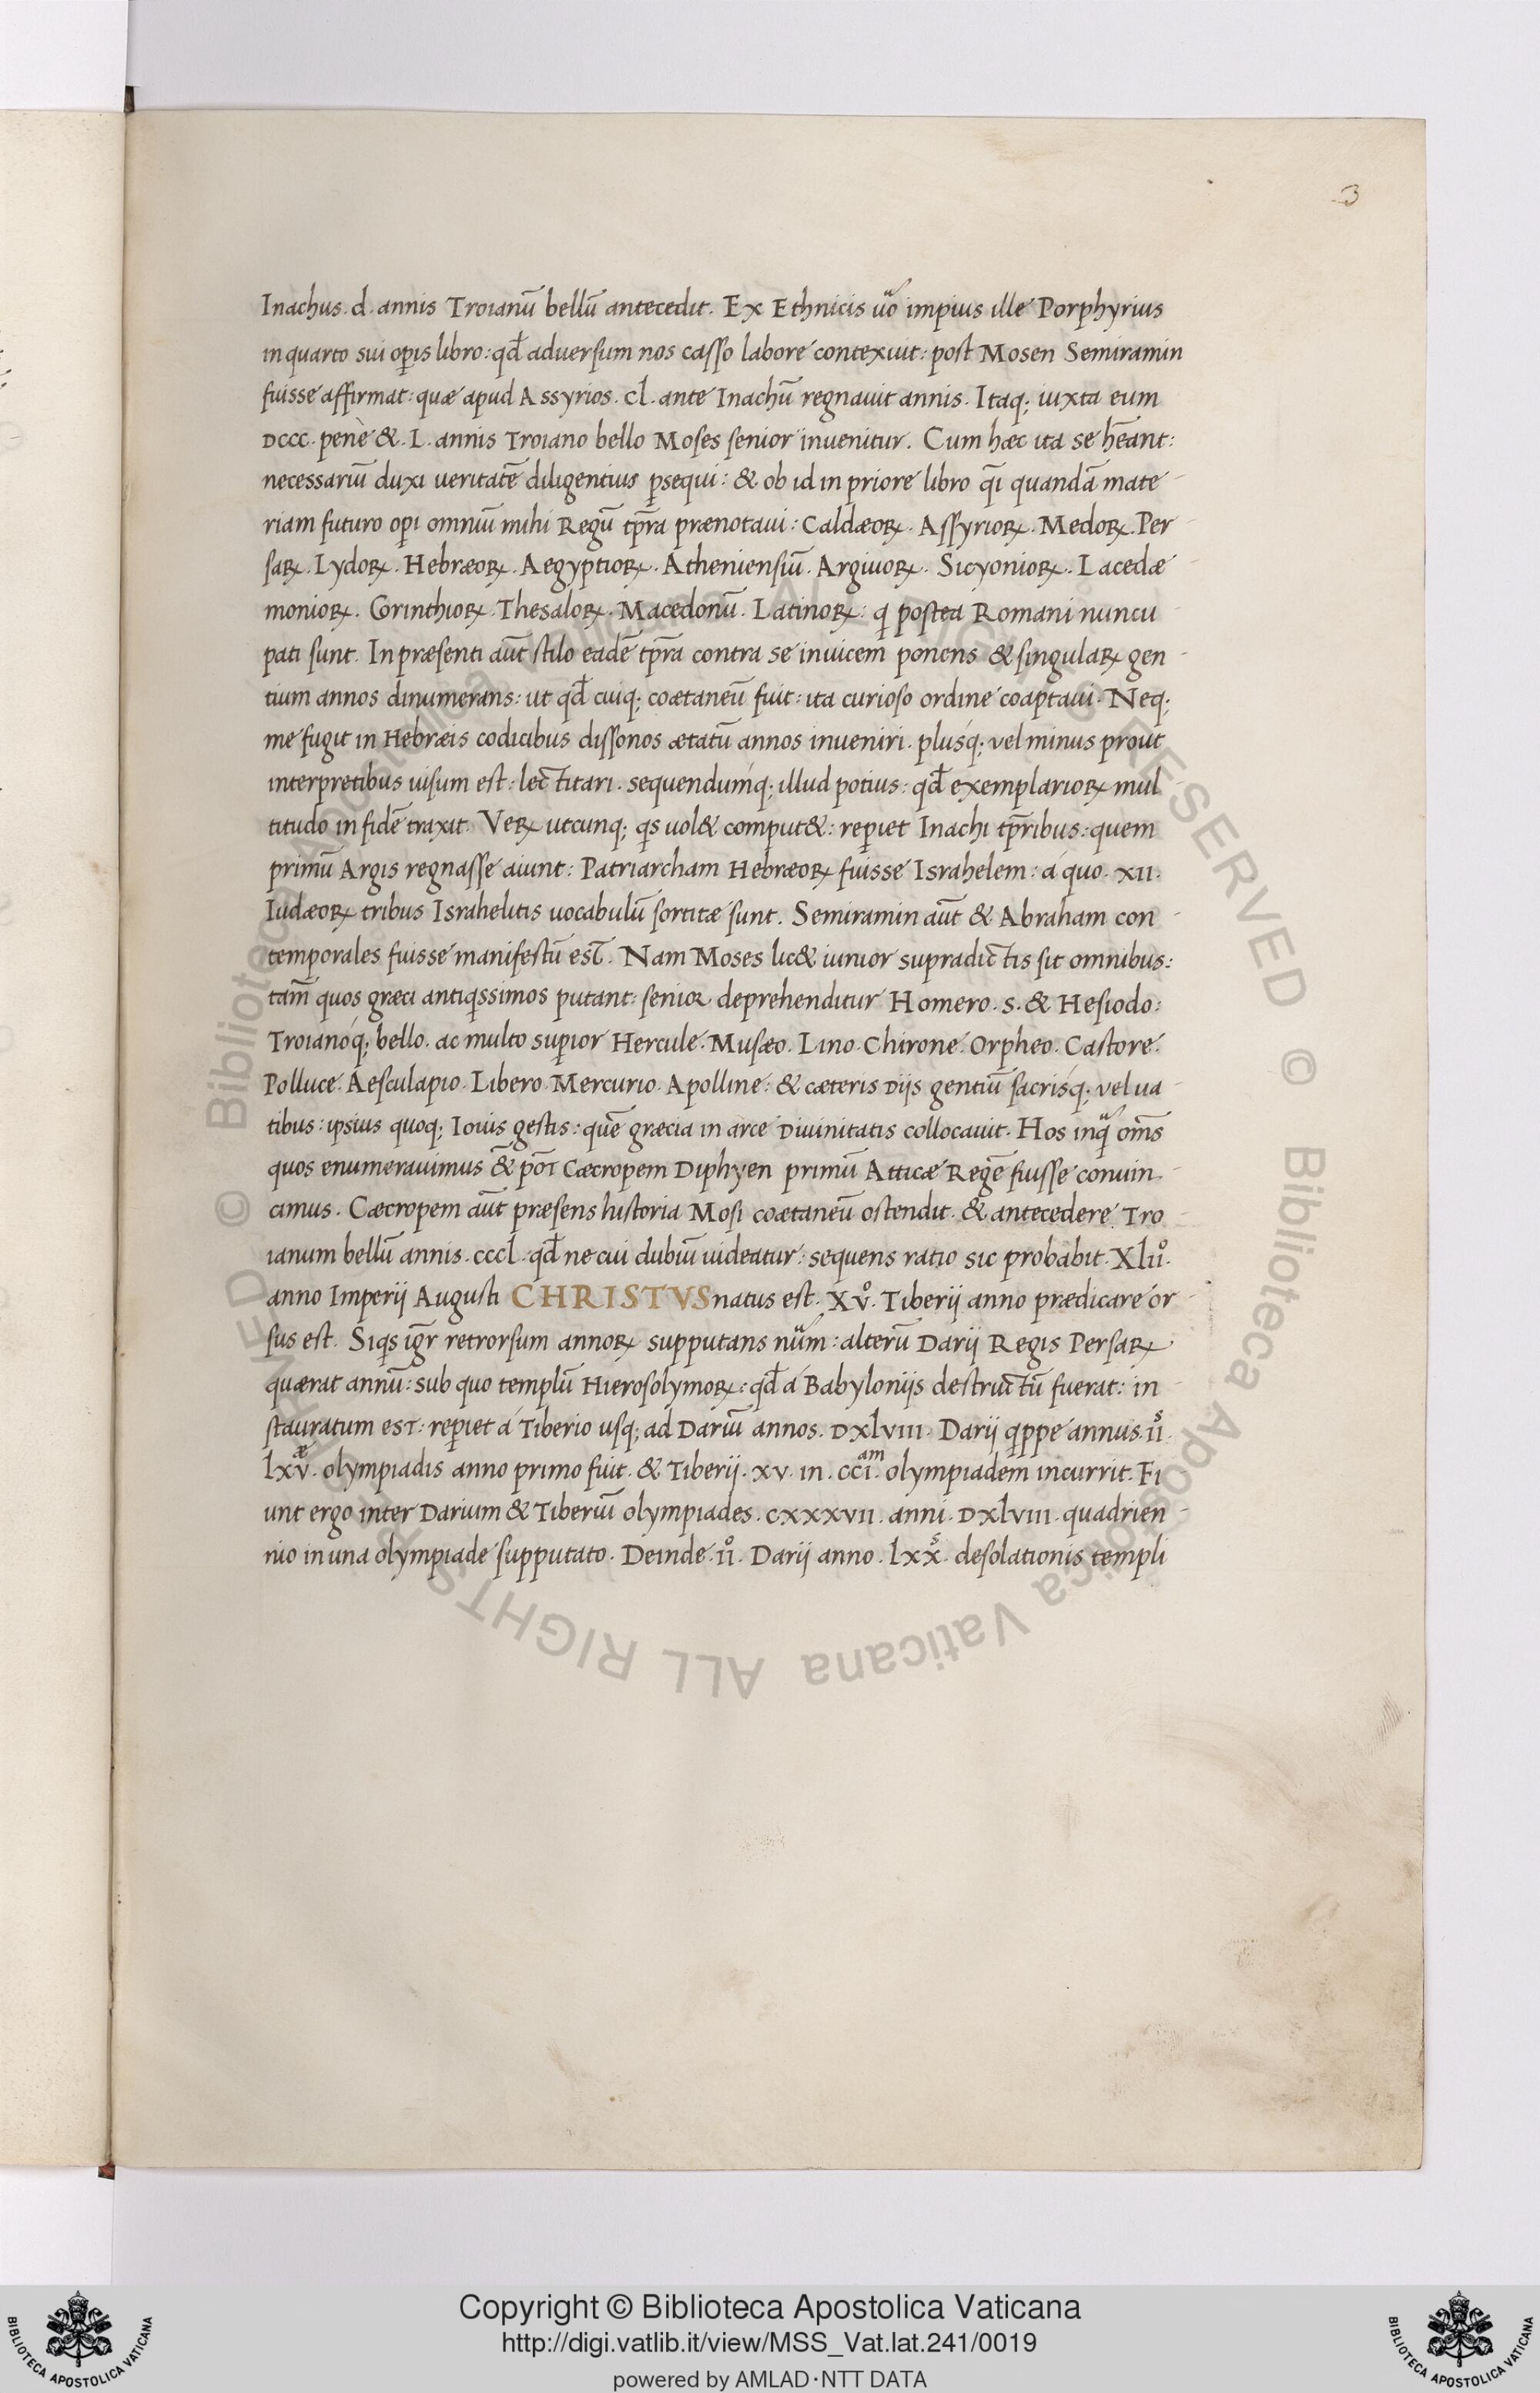 3
Inachus. d. annis Troianū bellū antecedit. Ex Ethnicis ũo impius ille Porphyrius
in quarto sui oꝑis libro: qđ aduersum nos casso labore contexuit: post Mosen Semiramin
fuisse affirmat: quæ apud Assyrios. cl. ante Inachū regnavit annis. Itaq; iuxta eum
DCCC. penè &. L. annis Troiano bello Moses senior invenitur. Cum hæc ita se hēant:
necessariū duxi ueritatē diligentius ꝑsequi: & ob id in priore libro q̄i quandā mate
riam futuro oꝑi omniū mihi Regū tp̄ra prænotaui: Caldæoꝝ. Assyrioꝝ. Medoꝝ. Per
saꝝ. Lydoꝝ. Hebræoꝝ. Aegyptioꝝ. Atheniensiū. Argiuoꝝ. Sicyonioꝝ. Lacedæ
monioꝝ. Corinthioꝝ. Thesaloꝝ. Macedonū. Latinoꝝ: q postea Romani nuncu
pati sunt. In præsenti aūt stilo eadē tp̄ra contra se inuicem ponens & singulaꝝ gen
tium annos dinumerans: ut qđ cuiq; coætaneū fuit: ita curioso ordine coaptaui. Neq;
me fugit in Hebræis codicibus dissonos ætatū annos inueniri. plusq́; vel minus prout
interpretibus uisum est: lectitari. sequendumq́; illud potius: qđ exemplarioꝝ mul
titudo in fidē traxit. Veꝝ utcunq; qs uol& comput&: reꝑiet Inachi tp̄ribus: quem
primū Argis regnasse aiunt: Patriarcham Hebræoꝝ fuisse Israhelem: á quo. XII.
Iudæoꝝ tribus Israhelitis uocabulū sortitæ sunt. Semiramin aūt & Abraham con
temporales fuisse manifestū est. Nam Moses lic& iunior supradictis sit omnibus:
tam̄ quos græci antiqssimos putant: senior deprehenditur Homero. s. & Hesiodo:
Troianoq́; bello. ac multo suꝑior Hercule. Musæo. Lino. Chirone. Orpheo. Castore.
Polluce. Aesculapio. Libero. Mercurio. Apolline: & cæteris Diis gentiū sacrisq́; vel ua
tibus: ipsius quoq; Iouis gestis: quē græcia in arce Divinitatis collocavit. Hos inq̃ om̄s
quos enumeravimus & Cæcropem Diphyen primū Atticæ Regē fuisse convin
cimus. Cæcropem aūt præsens historia Mosi coætaneū ostendit. & antecedere Tro
ianum bellū annis. cccl. qđ ne cui dubiū uideatur: sequens ratio sic probabit. Xlii°.
anno Imperij Augusti CHRISTVS natus est. Xv°. Tiberij anno prædicare ór
sus est. Siqs igr̄ retrorsum annoꝝ supputans nũm: alterū Darij Regis Persaꝝ
quærat annū: sub quo templū Hierosolymoꝝ: qđ á Babylonijs destructū fuerat: in
stauratum est: reꝑiet á Tiberio usq; ad Dariū annos. DXlVIII. Darij qppe annus. iiˢ.
lxvᵃᵉ. olympiadis anno primo fuit. & Tiberij. XV. in. cciᵃᵐ. olympiadem incurrit. Fi
unt ergo inter Darium & Tiberiū olympiades. CXXXVII. anni. DXlVIII. quadrien
nio in una olympiade supputato. Deinde. ii°. Darij anno. lxxˢ. desolationis templi
© Biblioteca Apostolica Vaticana ALL RIGHTS RESERVED © Biblioteca Apostolica Vaticana ALL RIGHTS RESERVED
Copyright © Biblioteca Apostolica Vaticana
http://digi.vatlib.it/view/MSS_Vat.lat.241/0019
powered by AMLAD·NTT DATA
BIBLIOTECA APOSTOLICA VATICANA
BIBLIOTECA APOSTOLICA VATICANA